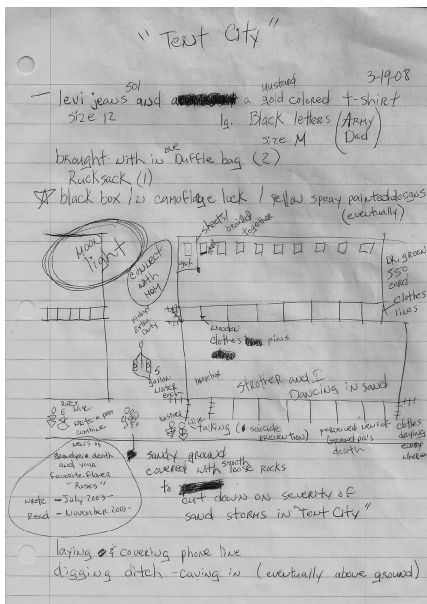 "Tent City"
3-19-08
501
mustard
— levi jeans and a a gold colored t-shirt
size 12 lg. Black letters (Army Dad)
size M
one
brought with in Duffle bag (2)
Rucksack (1)
black box in camoflage lock / yellow spray painted
(eventually)
MOON light
CONNECT with MOM
sheets braided together
box
DK. green 550 cord
clothes lines
Extra Duty
wooden clothes pins
5 gallon water
each
Strother and I
Dancing in sand
wire
combine
talking (suicide prevention)
received news of Grandpa's death
clothes drying every where
news of Grandpa's death
and your
Favorite flower
"Roses"
wrote - July 2003
Read - November 2003
sandy ground
covered with smooth loose rocks
to
cut down on severity of
sand storms in "Tent City"
laying & covering phone line
digging ditch - caving in (eventually above ground)